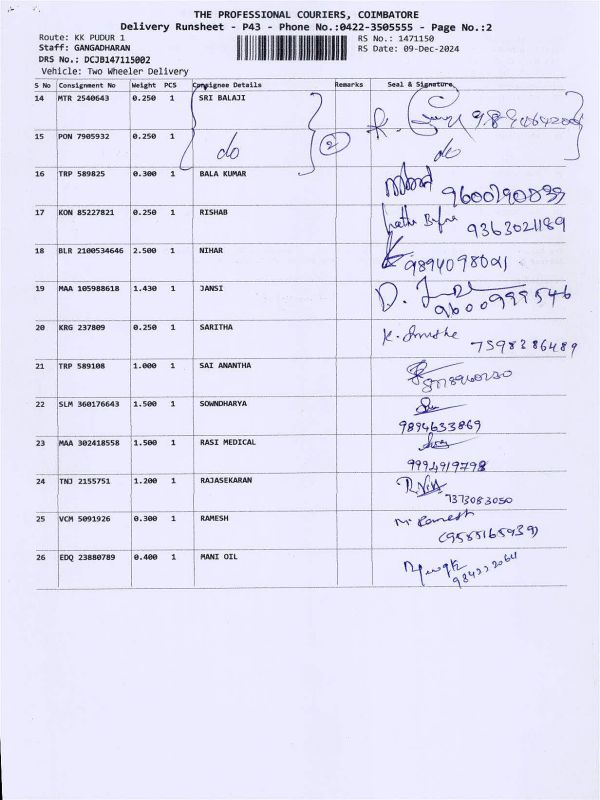 THE PROFESSIONAL COURIERS, COIMBATORE
Delivery Runsheet - P43 - Phone No.:0422-3505555 - Page No.:2
Route: KK PUDUR 1 RS No.: 1471150
Staff: GANGADHARAN RS Date: 09-Dec-2024
DRS No.: DCJB147115002
Vehicle: Two Wheeler Delivery
S No Consignment No Weight PCS Consignee Details Remarks Seal & Signature
14 MTR 2540643 0.250 1 SRI BALAJI
15 PON 7905932 0.250 1 do 2 do
16 TRP 589825 0.300 1 BALA KUMAR 9600290839
17 KON 85227821 0.250 1 RISHAB 9363021189
18 BLR 2100534646 2.500 1 NIHAR 9894098021
19 MAA 105988618 1.430 1 JANSI 9600999546
20 KRG 237809 0.250 1 SARITHA 7598386489
21 TRP 589108 1.000 1 SAI ANANTHA
22 SLM 360176643 1.500 1 SOWNDHARYA 9894633869
23 MAA 302418558 1.500 1 RASI MEDICAL 9994919798
24 TNJ 2155751 1.200 1 RAJASEKARAN 7373083050
25 VCM 5091926 0.300 1 RAMESH Mr Ramesh
(9585165939)
26 EDQ 23880789 0.400 1 MANI OIL